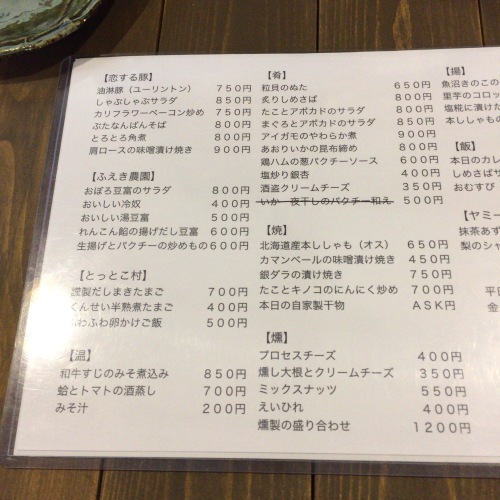 【恋する豚】
油淋豚（ユーリントン） 750円
しゃぶしゃぶサラダ 850円
カリフラワーベーコン炒め 750円
ぶたなんばんそば 800円
とろとろ角煮 800円
肩ロースの味噌漬け焼き 900円
【ふえき農園】
おぼろ豆富のサラダ 800円
おいしい冷奴 400円
おいしい湯豆富 500円
れんこん餡の揚げだし豆富 600円
生揚げとパクチーの炒めもの 600円
【とっとこ村】
謹製だしまきたまご 700円
くんせい半熟煮たまご 400円
ふわふわ卵かけご飯 500円
【温】
和牛すじのみそ煮込み 850円
蛤とトマトの酒蒸し 700円
みそ汁 200円
【肴】
粒貝のぬた 650円
炙りしめさば 800円
たことアボカドのサラダ 800円
まぐろとアボカドのサラダ 800円
アイガモのやわらか煮 900円
あおりいかの昆布締め 800円
鶏ハムの葱パクチーソース 600円
塩炒り銀杏 400円
酒盗クリームチーズ 350円
いか一夜干しのパクチー和え 500円
【焼】
北海道産本ししゃも（オス） 650円
カマンベールの味噌漬け焼き 450円
銀ダラの漬け焼き 750円
たことキノコのにんにく炒め 700円
本日の自家製干物 ASK円
【燻】
プロセスチーズ 400円
燻し大根とクリームチーズ 350円
ミックスナッツ 550円
えいひれ 400円
燻製の盛り合わせ 1200円
【揚】
魚沼きのこの
里芋のコロッ
塩糀に漬けた
本ししゃもの
【飯】
本日のカレ
しめさばサ
おむすび
【ヤミー
抹茶あず
梨のシャ
平日
金